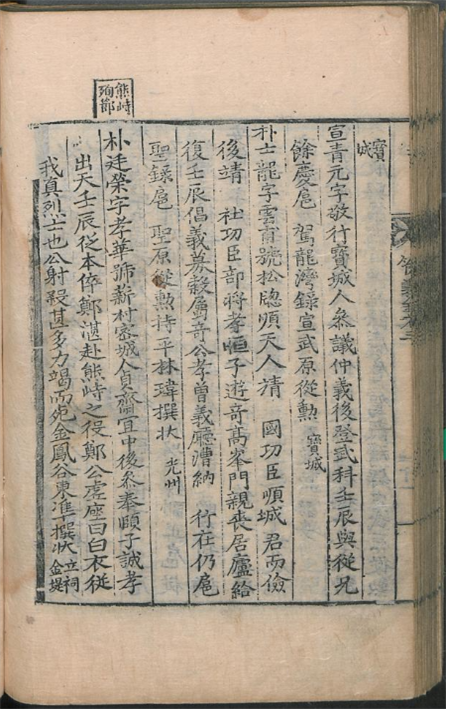 熊峙
殉節
寶城
宣青元字敬行寶城人叅議仲義後登武科壬辰與從兄
餘慶扈 駕龍灣錄宣武原從勳 寶城
朴士龍字雲甫號松隱順天人靖 國功臣順城君而儉
後靖 社功臣部將孝恒子遊奇高峯門親喪居廬給
復壬辰倡義募穀屬奇公孝曾義廳漕納 行在仍扈
聖錄扈 聖原從勲持平林瑋撰狀 光州
朴廷榮字孝華號薪村密城人貞齋宜中後叅奉頤子誠孝
出天壬辰從本倅鄭湛赴熊峙之役鄭公虛座曰白衣從
我真烈士也公射殺甚多力竭而死金鳳谷東準撰狀 立祠金堤